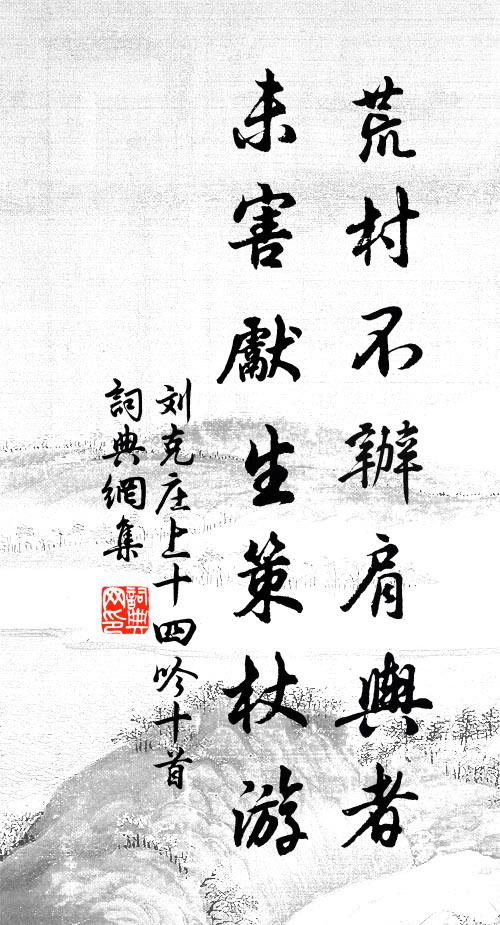 荒村不辦肩輿者
未害獻生策杖游
刘克庄上十四吟十首
詞典網集
詞典
网印